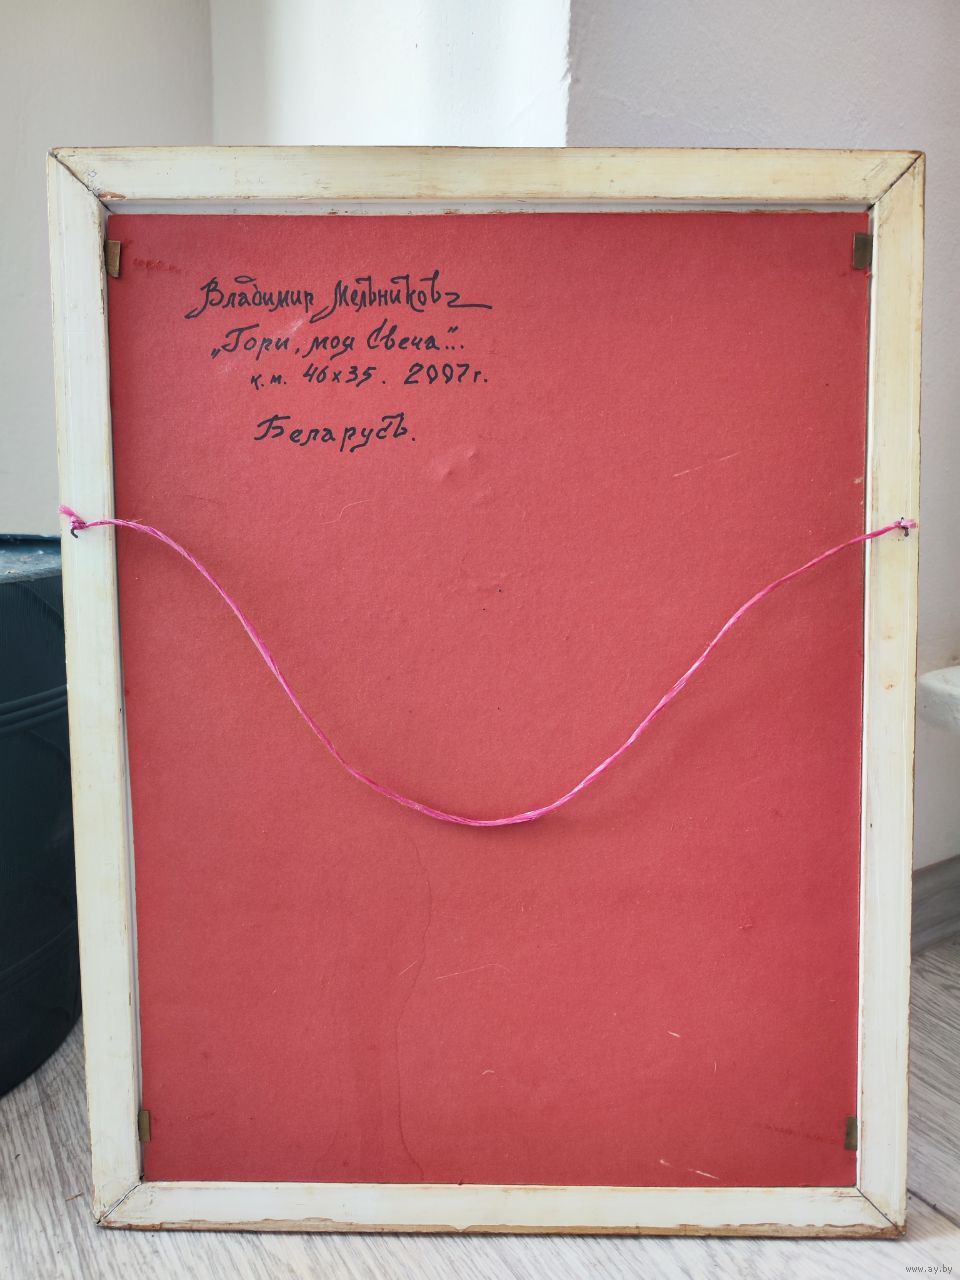 Владимир Мельниковъ
„Гори, моя Свеча"...
к.м. 46х35. 2007г.
Беларусь.
www.ay.by